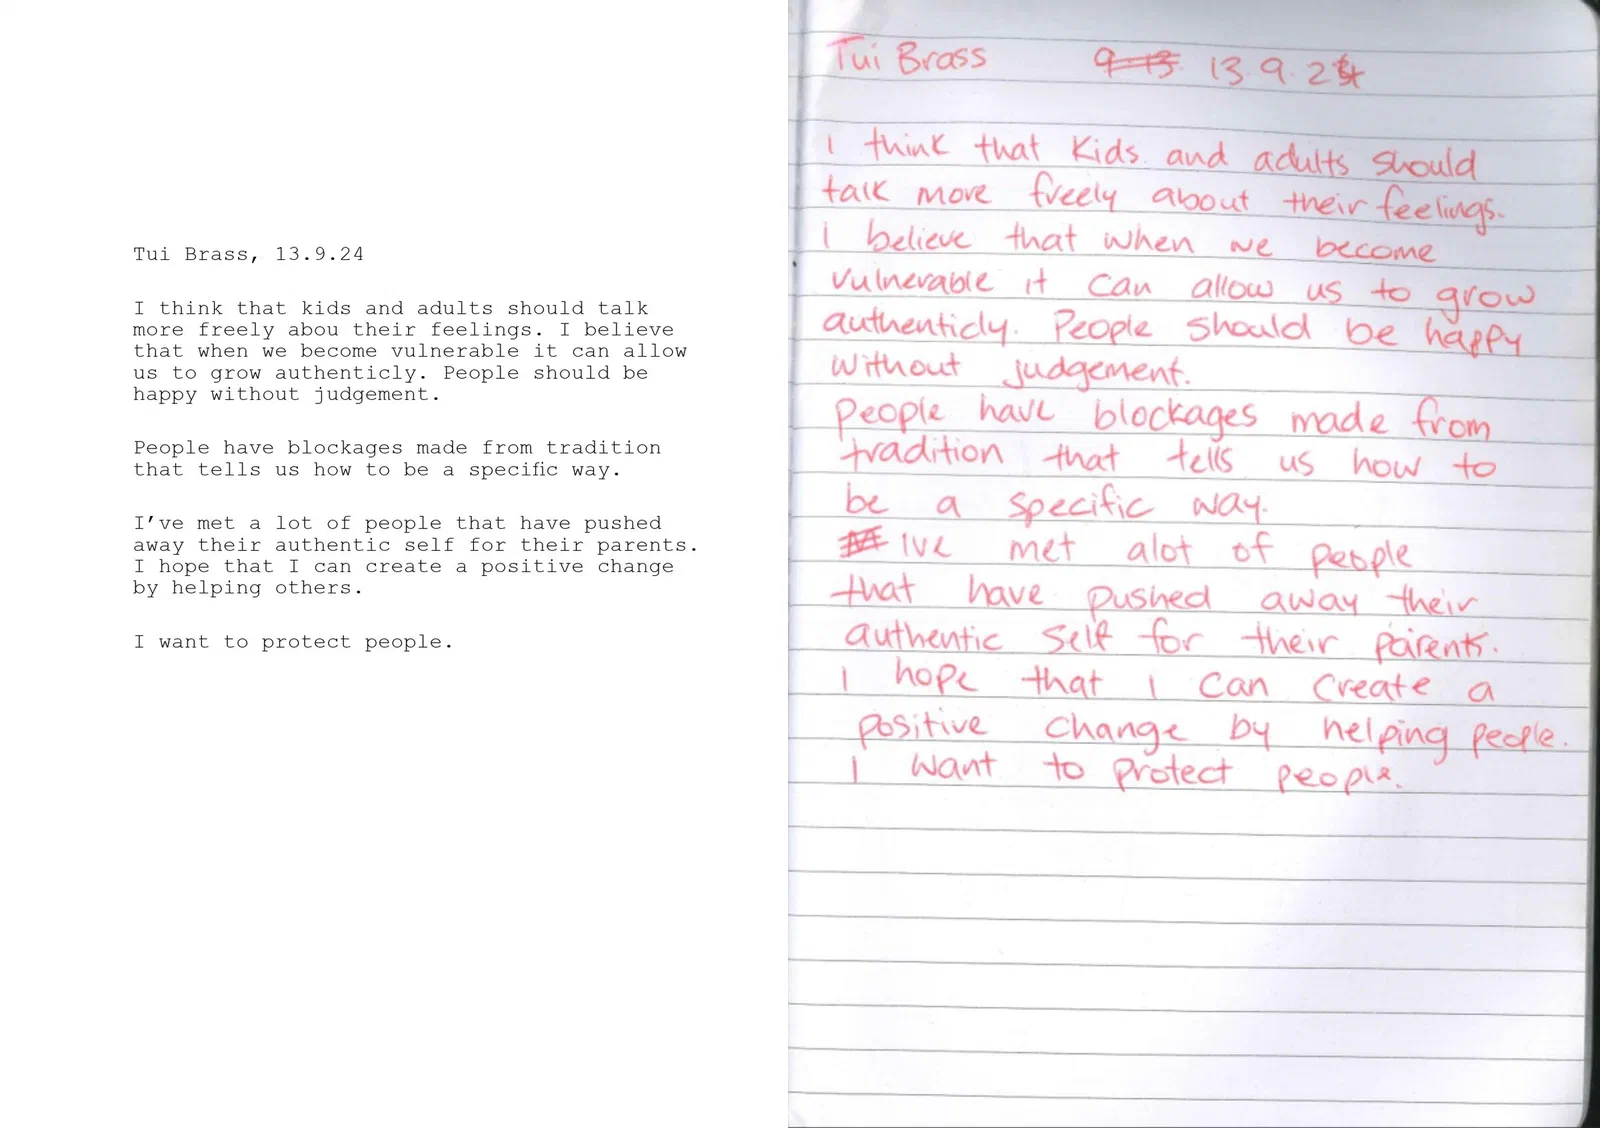 Tui Brass, 13.9.24
I think that kids and adults should talk
more freely abou their feelings. I believe
that when we become vulnerable it can allow
us to grow authenticly. People should be
happy without judgement.
People have blockages made from tradition
that tells us how to be a specific way.
I've met a lot of people that have pushed
away their authentic self for their parents.
I hope that I can create a positive change
by helping others.
I want to protect people.
Tui Brass 9-13 13.9.24
I think that kids and adults should
talk more freely about their feelings.
I believe that when we become
vulnerable it can allow us to grow
authenticly. People should be happy
without judgement.
People have blockages made from
tradition that tells us how to
be a specific way.
Ive met alot of people
that have pushed away their
authentic self for their parents.
I hope that I can create a
positive change by helping people.
I want to protect people.